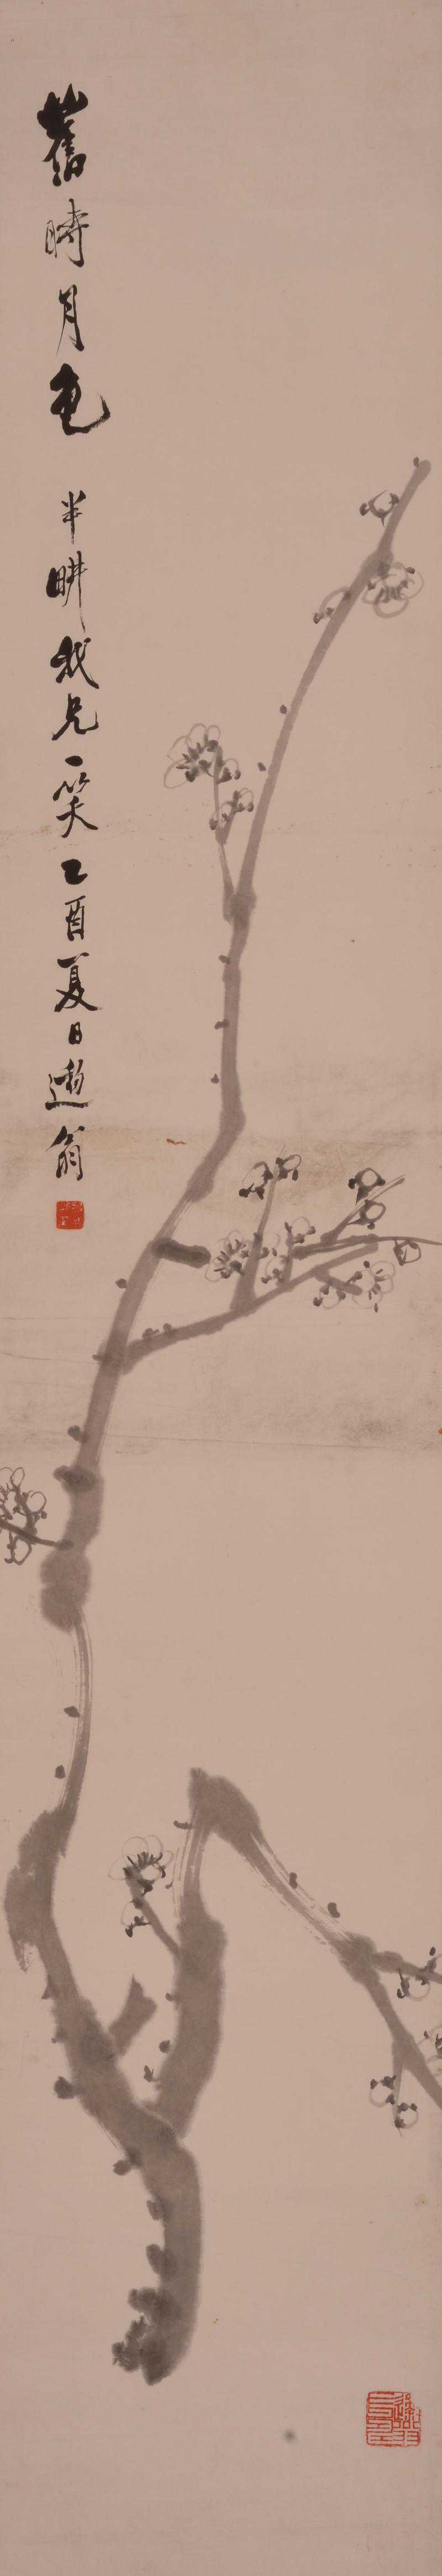 舊時月色 半畊我兄一笑 乙酉夏日遯翁